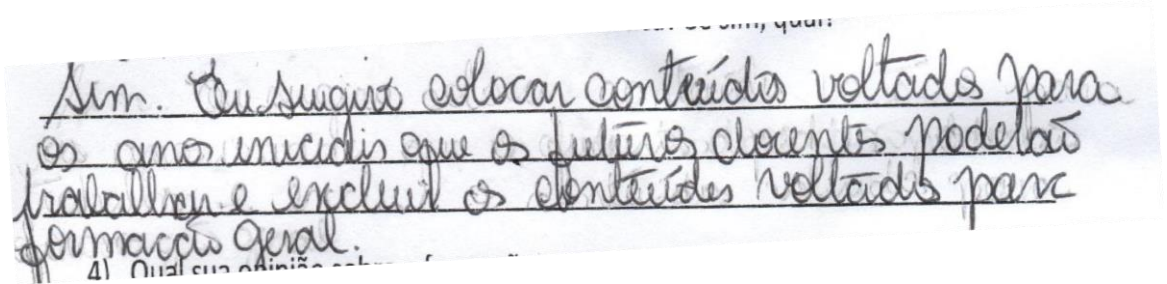 se sim, qual?
Sim. Eu sugiro colocar conteúdos voltados para
os anos iniciais que os futuros docentes poderão
trabalhar e excluir os conteúdos voltados para
formação geral.
4) Qual sua opinião sobre